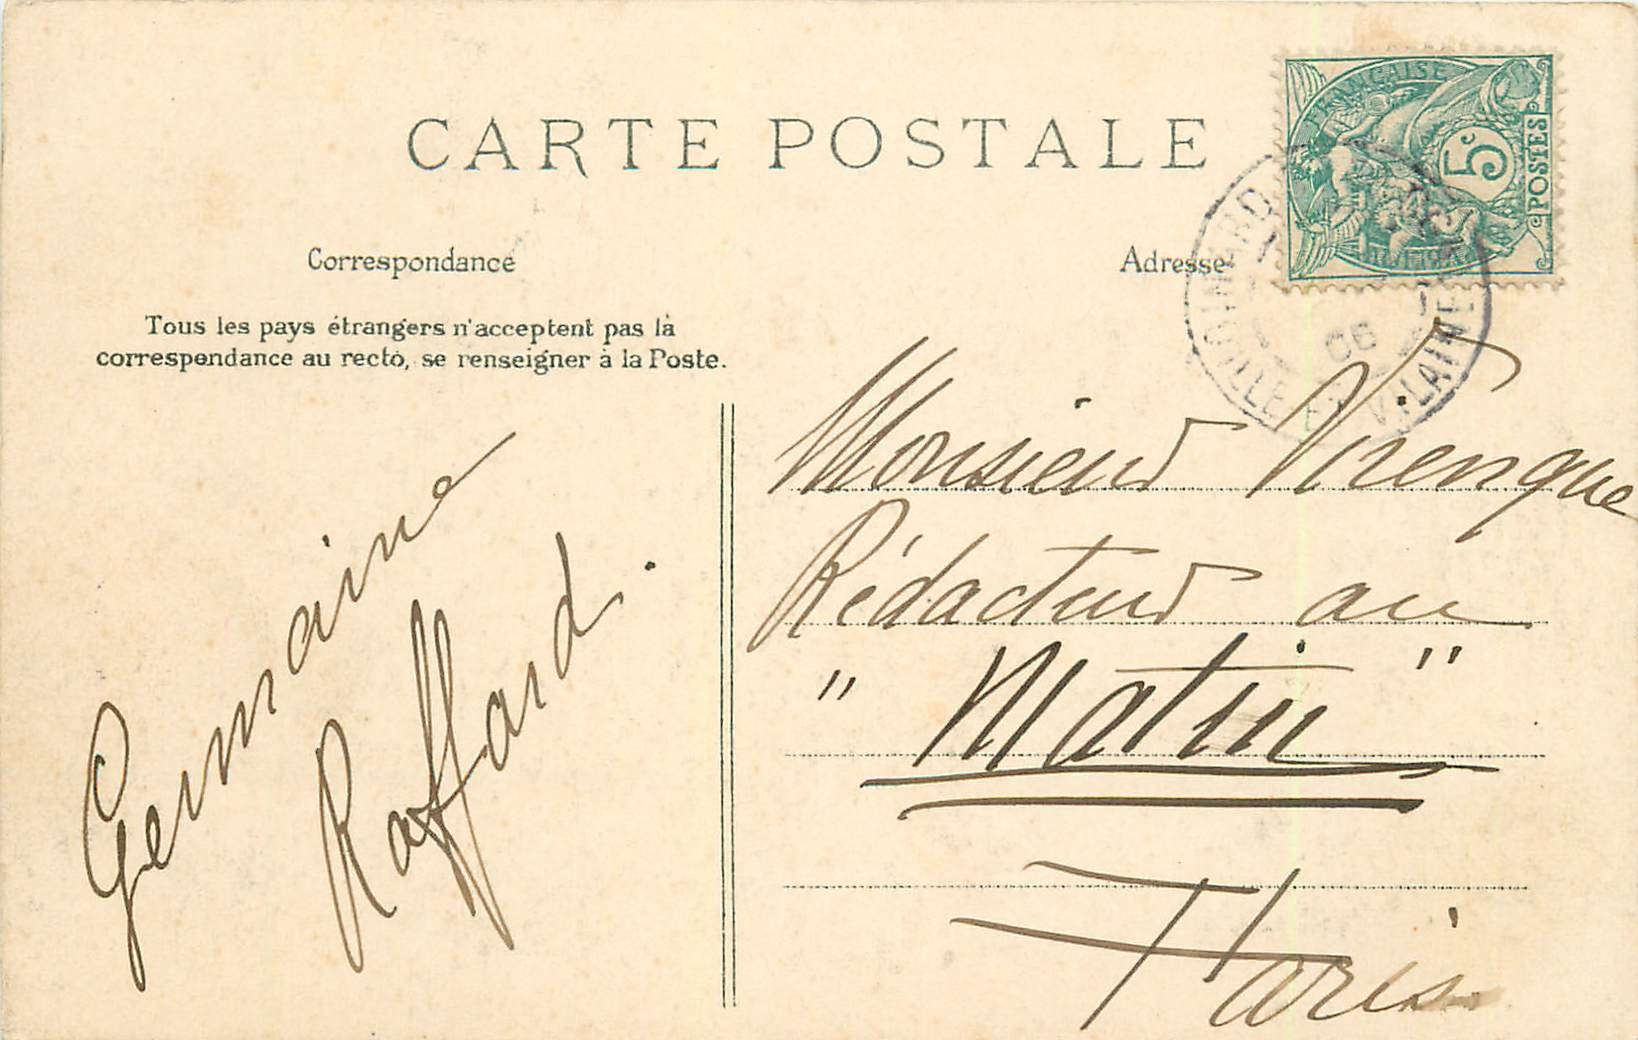 CARTE POSTALE
Correspondance
Adresse
Tous les pays étrangers n'acceptent pas la
correspondance au recto, se renseigner à la Poste.
FRANÇAISE
5c
POSTES
DINARD
06
ILLE ET VILAINE
Monsieur Virenque
Rédacteur au
" Matin "
Paris
Germaine
Raffard.